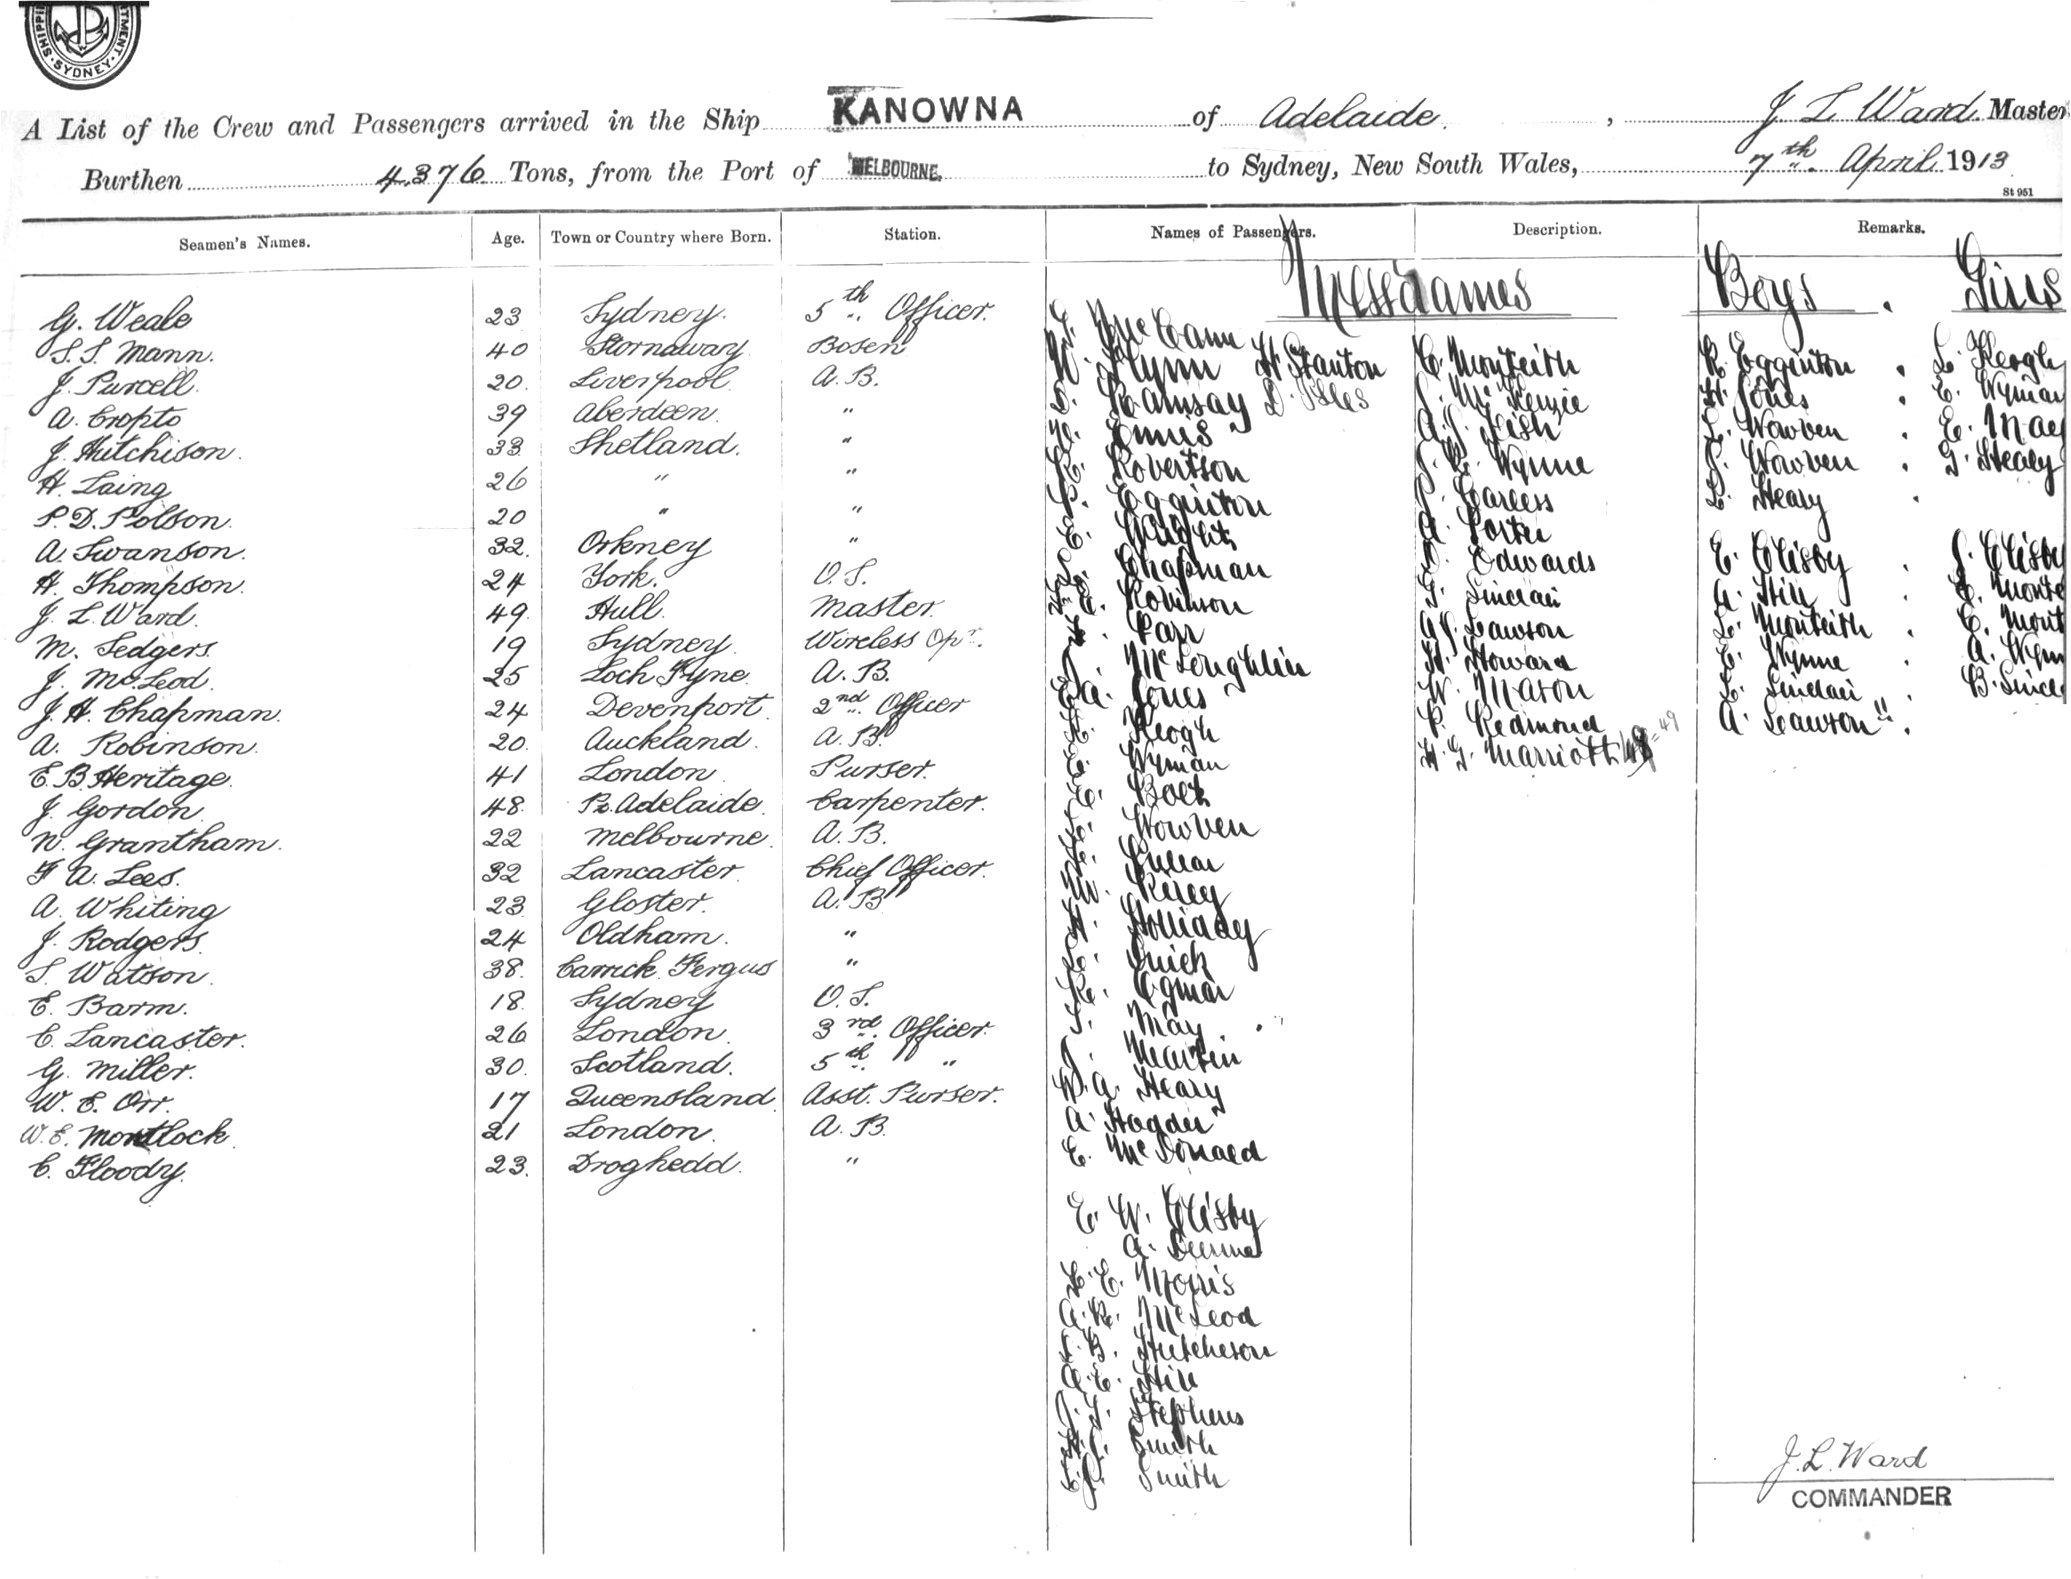 SHIPPI TMENT SYDNEY
A List of the Crew and Passengers arrived in the Ship KANOWNA of Adelaide, J L Ward Master
Burthen 4.376 Tons, from the Port of MELBOURNE. to Sydney, New South Wales, 7th April 1913
St 951
Seamen's Names. Age. Town or Country where Born. Station. Names of Passengers. Description. Remarks.
Messdames Boys Girls
G. Weale 23 Sydney. 5th Officer.
S. S. Mann. 40 Stornaway Bosen
J. Purcell. 20. Liverpool A.B.
A. Cropto 39 Aberdeen. "
J. Hutchison. 33 Shetland. "
H. Laing 26 " "
P. D. Polson. 20 " "
A. Swanson. 32. Orkney "
H. Thompson. 24 York. O.S.
J. L. Ward. 49. Hull. Master.
M. Sedgers 19 Sydney. Wireless Opr.
J. McLeod. 25 Loch Fyne. A.B.
J. H. Chapman. 24 Devenport. 2nd Officer
A. Robinson. 20. Auckland. A.B.
E. B. Heritage. 41 London. Purser.
J. Gordon. 48. Pt. Adelaide. Carpenter.
N. Grantham. 22 Melbourne. A.B.
F A. Lees. 32 Lancaster. Chief Officer.
A. Whiting 23 Gloster. A.B
J. Rodgers. 24 Oldham. "
S. Watson. 38. Carrick Fergus "
E. Barm. 18. Sydney O.S.
C. Lancaster. 26 London. 3rd Officer.
G. Miller. 30. Scotland. 5th "
W. E. Orr. 17 Queensland Asst. Purser.
W. E. Mortlock. 21 London. A.B.
C. Floody. 23. Droghedd. "
McCann
Flynn H Stanton
Ramsay D. Isles
Ennis
Robertson
Egginton
Wright
Chapman
Robinson
Parr
McLoughlin
A. Jones
Keogh
Wyman
Bock
Wowven
W. Kirey
H. Holliday
Quick
Egmar
May
Martin
W. A. Heary
A. Hodder
E. McDonald
E. W. Elisby
A.
L. E. Morris
A. R. McLeod
B. Hutcheson
A. E. Hill
Stephens
Smith
Smith
C. Monteith
McKenzie
A. J. Fish
Wynne
Careless
A. Porter
Edwards
Sinclair
A J. Lawson
H. Howard
W. Mason
P. Redmond
H. G. Marriott 48 = 49
R. Egginton . L. Keogh
H. Jones . E. Wyman
Wowven . E. May
Wowven . G. Heary
L. Heary .
E. Elisby . J. Elisby
A. Hill . E. Monte
L. Monteith . C. Mont
E. Wynne . A. Wyn
L. Sinclair . B. Sincl
A. Lawson 11 .
J. L. Ward
COMMANDER